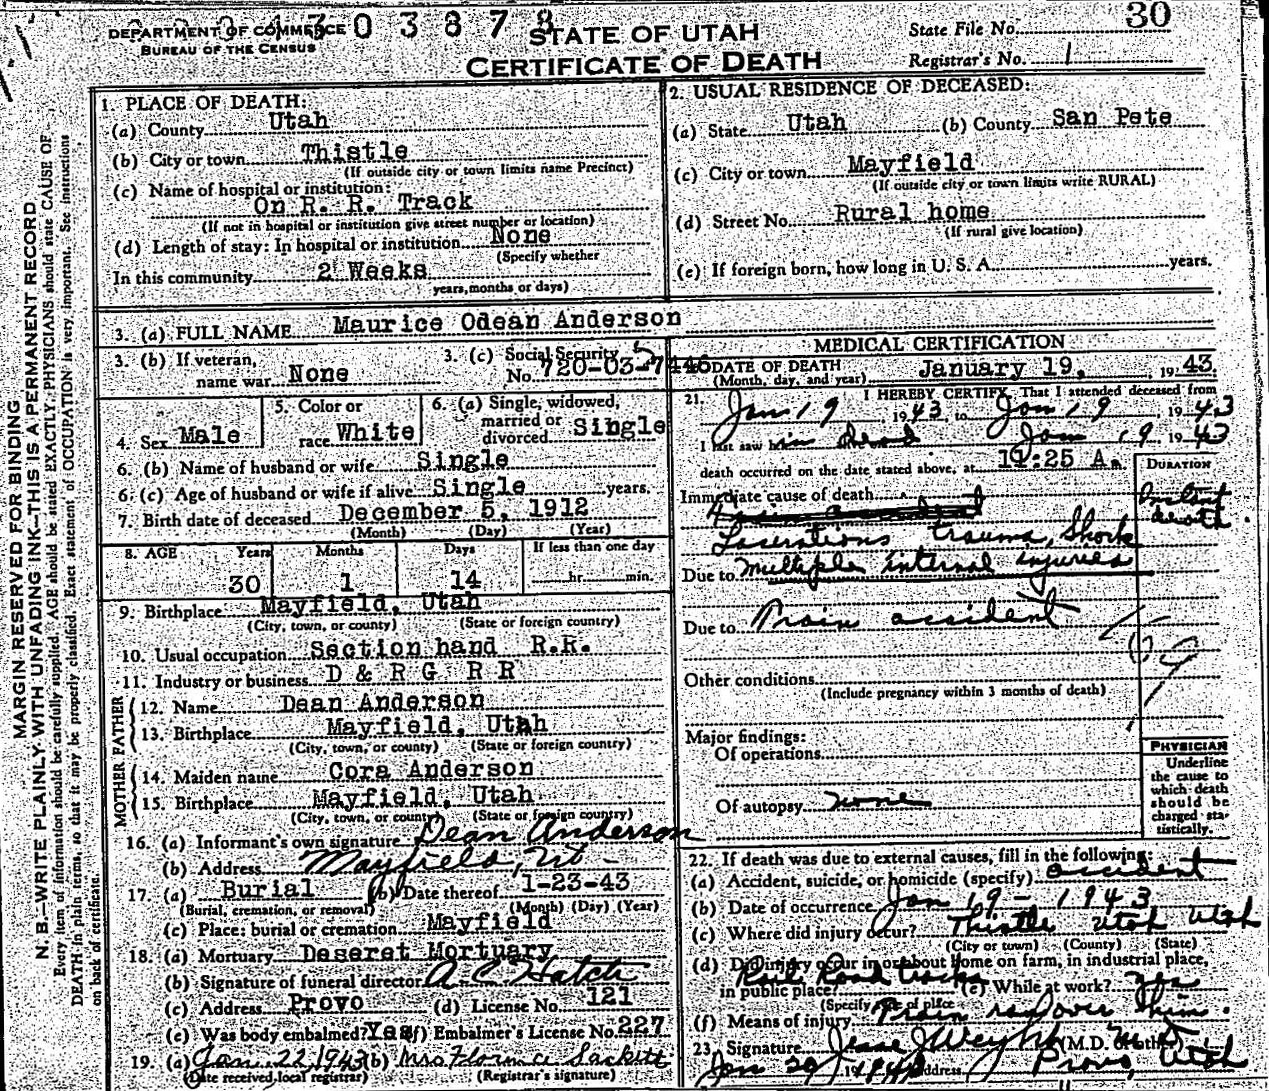 DEPARTMENT OF COMMERCE
BUREAU OF THE CENSUS
4303878
STATE OF UTAH
CERTIFICATE OF DEATH
State File No. 30
Registrar's No. 1
MARGIN RESERVED FOR BINDING
N. B.—WRITE PLAINLY, WITH UNFADING INK—THIS IS A PERMANENT RECORD
Every item of information should be carefully supplied. AGE should be stated EXACTLY. PHYSICIANS should state CAUSE OF
DEATH in plain terms, so that it may be properly classified. Exact statement of OCCUPATION is very important. See instructions
on back of certificate.
1. PLACE OF DEATH:
(a) County Utah
(b) City or town Thistle
(If outside city or town limits name Precinct)
(c) Name of hospital or institution:
On R. R. Track
(If not in hospital or institution give street number or location)
(d) Length of stay: In hospital or institution None
(Specify whether
In this community 2 Weeks
years, months or days)
2. USUAL RESIDENCE OF DECEASED:
(a) State Utah (b) County San Pete
(c) City or town Mayfield
(If outside city or town limits write RURAL)
(d) Street No. Rural home
(If rural give location)
(e) If foreign born, how long in U. S. A. years.
3. (a) FULL NAME Maurice Odean Anderson
3. (b) If veteran, name war None
3. (c) Social Security No. 720-03-7446
4. Sex Male
5. Color or race White
6. (a) Single, widowed, married or divorced Single
6. (b) Name of husband or wife Single
6. (c) Age of husband or wife if alive Single years.
7. Birth date of deceased December 5, 1912
(Month) (Day) (Year)
8. AGE Years Months Days If less than one day
30 1 14 hr. min.
9. Birthplace Mayfield, Utah
(City, town, or county) (State or foreign country)
10. Usual occupation Section hand R.R.
11. Industry or business D & R G R R
FATHER
12. Name Dean Anderson
13. Birthplace Mayfield, Utah
(City, town, or county) (State or foreign country)
MOTHER
14. Maiden name Cora Anderson
15. Birthplace Mayfield, Utah
(City, town, or county) (State or foreign country)
16. (a) Informant's own signature Dean Anderson
(b) Address Mayfield, Ut -
17. (a) Burial (b) Date thereof 1-23-43
(Burial, cremation, or removal) (Month) (Day) (Year)
(c) Place: burial or cremation Mayfield
18. (a) Mortuary Deseret Mortuary
(b) Signature of funeral director A. C. Hatch
(c) Address Provo (d) License No. 121
(e) Was body embalmed? Yes (f) Embalmer's License No. 227
19. (a) Jan. 22, 1943 (b) Mrs. Florence Sackett
(Date received local registrar) (Registrar's signature)
MEDICAL CERTIFICATION
DATE OF DEATH January 19, 1943.
(Month, day, and year)
21. I HEREBY CERTIFY, That I attended deceased from
Jan 19 1943 to Jan 19, 1943
I last saw him dead Jan 19 1943
death occurred on the date stated above, at 11:25 A. m.
DURATION
Immediate cause of death
Instant death.
Lacerations trauma, Shock
Due to multiple internal injuries
Due to Train accident
Other conditions
(Include pregnancy within 3 months of death)
Major findings:
Of operations
Of autopsy none
PHYSICIAN
Underline
the cause to
which death
should be
charged sta-
tistically.
22. If death was due to external causes, fill in the following:
(a) Accident, suicide, or homicide (specify) accident
(b) Date of occurrence Jan 19 - 1943
(c) Where did injury occur? Thistle Utah Utah
(City or town) (County) (State)
(d) Did injury occur in or about home on farm, in industrial place,
in public place? Rail Road tracks (e) While at work? Yes
(Specify type of place)
(f) Means of injury Train ran over him.
23. Signature (M.D. or other)
Jan 20, 1943 Address Provo, Utah